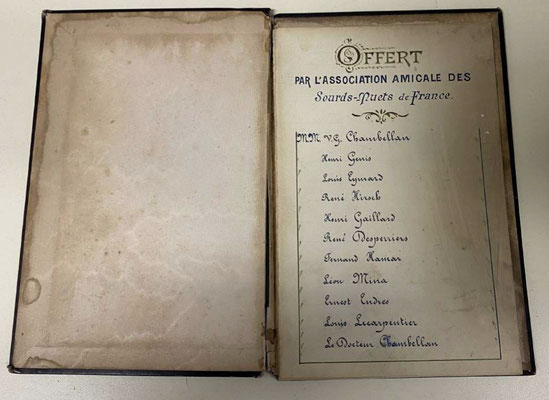 OFFERT
PAR L'ASSOCIATION AMICALE DES
Sourds-Muets de France.
MM. V.G. Chambellan
Henri Genis
Louis Eymard
René Hirsch
Henri Gaillard
René Desperriers
Fernand Hamar
Léon Mina
Ernest Endres
Louis Lecarpentier
Le Docteur Chambellan